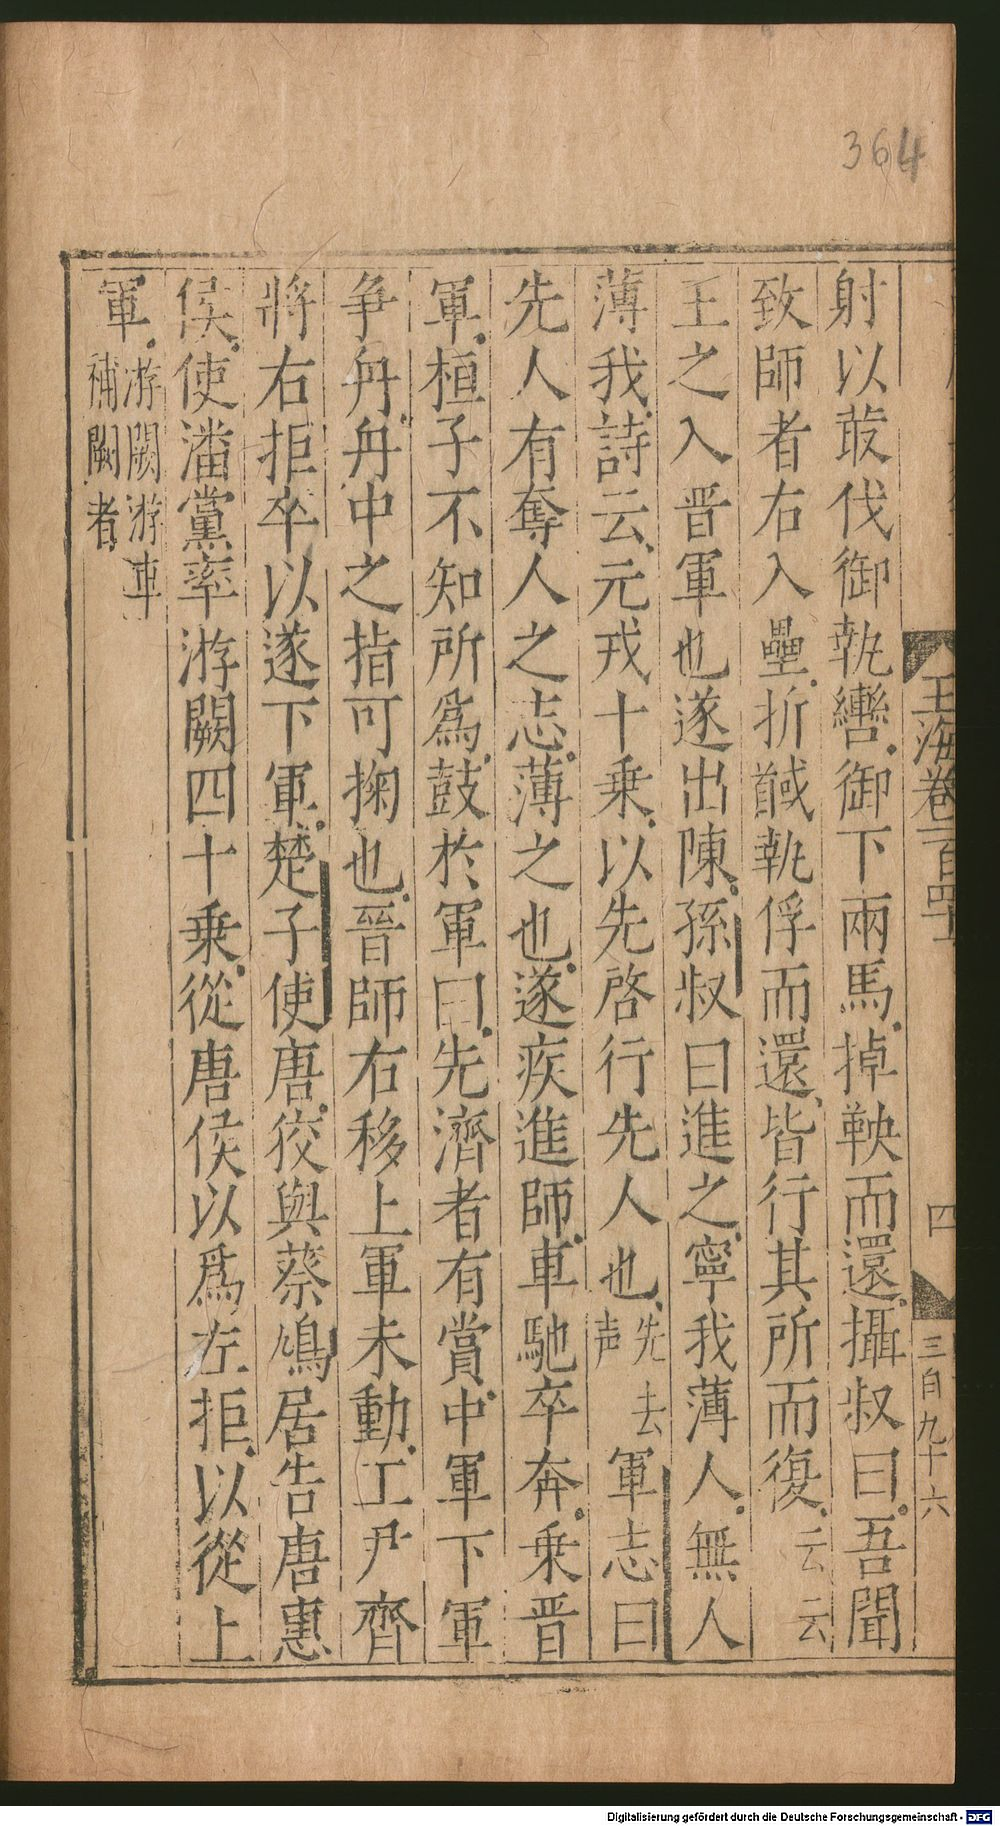 364
玉海卷一百四十
四
三百九十六
射以菆伐御執轡御下兩馬掉鞅而還攝叔曰吾聞
致師者右入壘折馘執俘而還皆行其所而復云云
王之入晋軍也遂出陳孫叔曰進之寧我薄人無人
薄我詩云元戎十乗以先啓行先人也先去声軍志曰
先人有奪人之志薄之也遂疾進師車馳卒奔乗晋
軍桓子不知所爲鼓於軍曰先濟者有賞中軍下軍
争舟舟中之指可掬也晉師右移上軍未動工尹齊
將右拒卒以遂下軍楚子使唐狡與蔡鳩居告唐惠
侯使潘黨率游闕四十乗從唐侯以爲左拒以從上
軍游闕游車補闕者
Digitalisierung gefördert durch die Deutsche Forschungsgemeinschaft - DFG